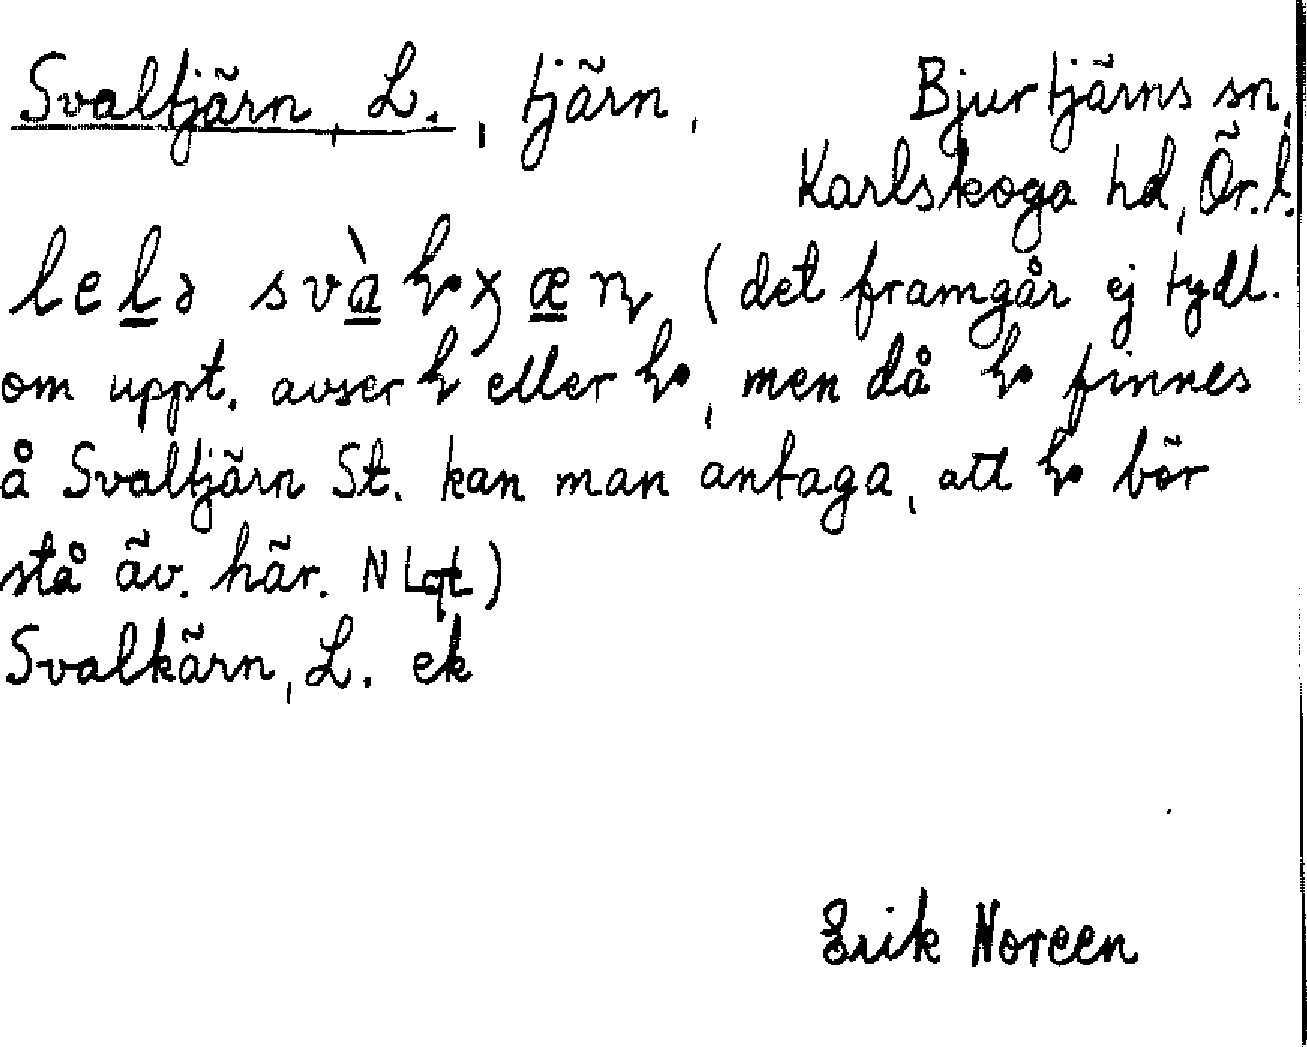 Svaltjärn, L., tjärn, Bjurtjärns sn,
Karlskoga hd, Ör. l.
(det framgår ej tydl.
om uppt. avser eller , men då finnes
å Svaltjärn St. kan man antaga, att bör
stå äv. här. )
Svalkärn, L. ek
Erik Noreen